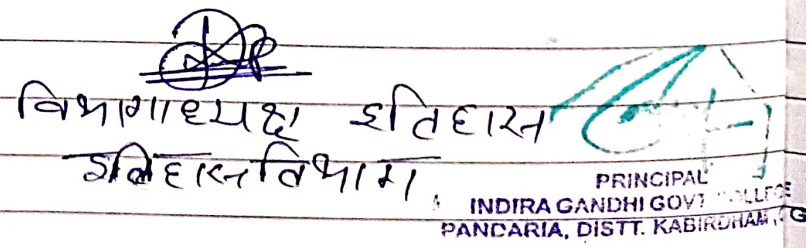 विभागाध्यक्ष इतिहास
इतिहास विभाग
PRINCIPAL
INDIRA GANDHI GOVT COLLEGE
PANDARIA, DISTT. KABIRDHAM, CG